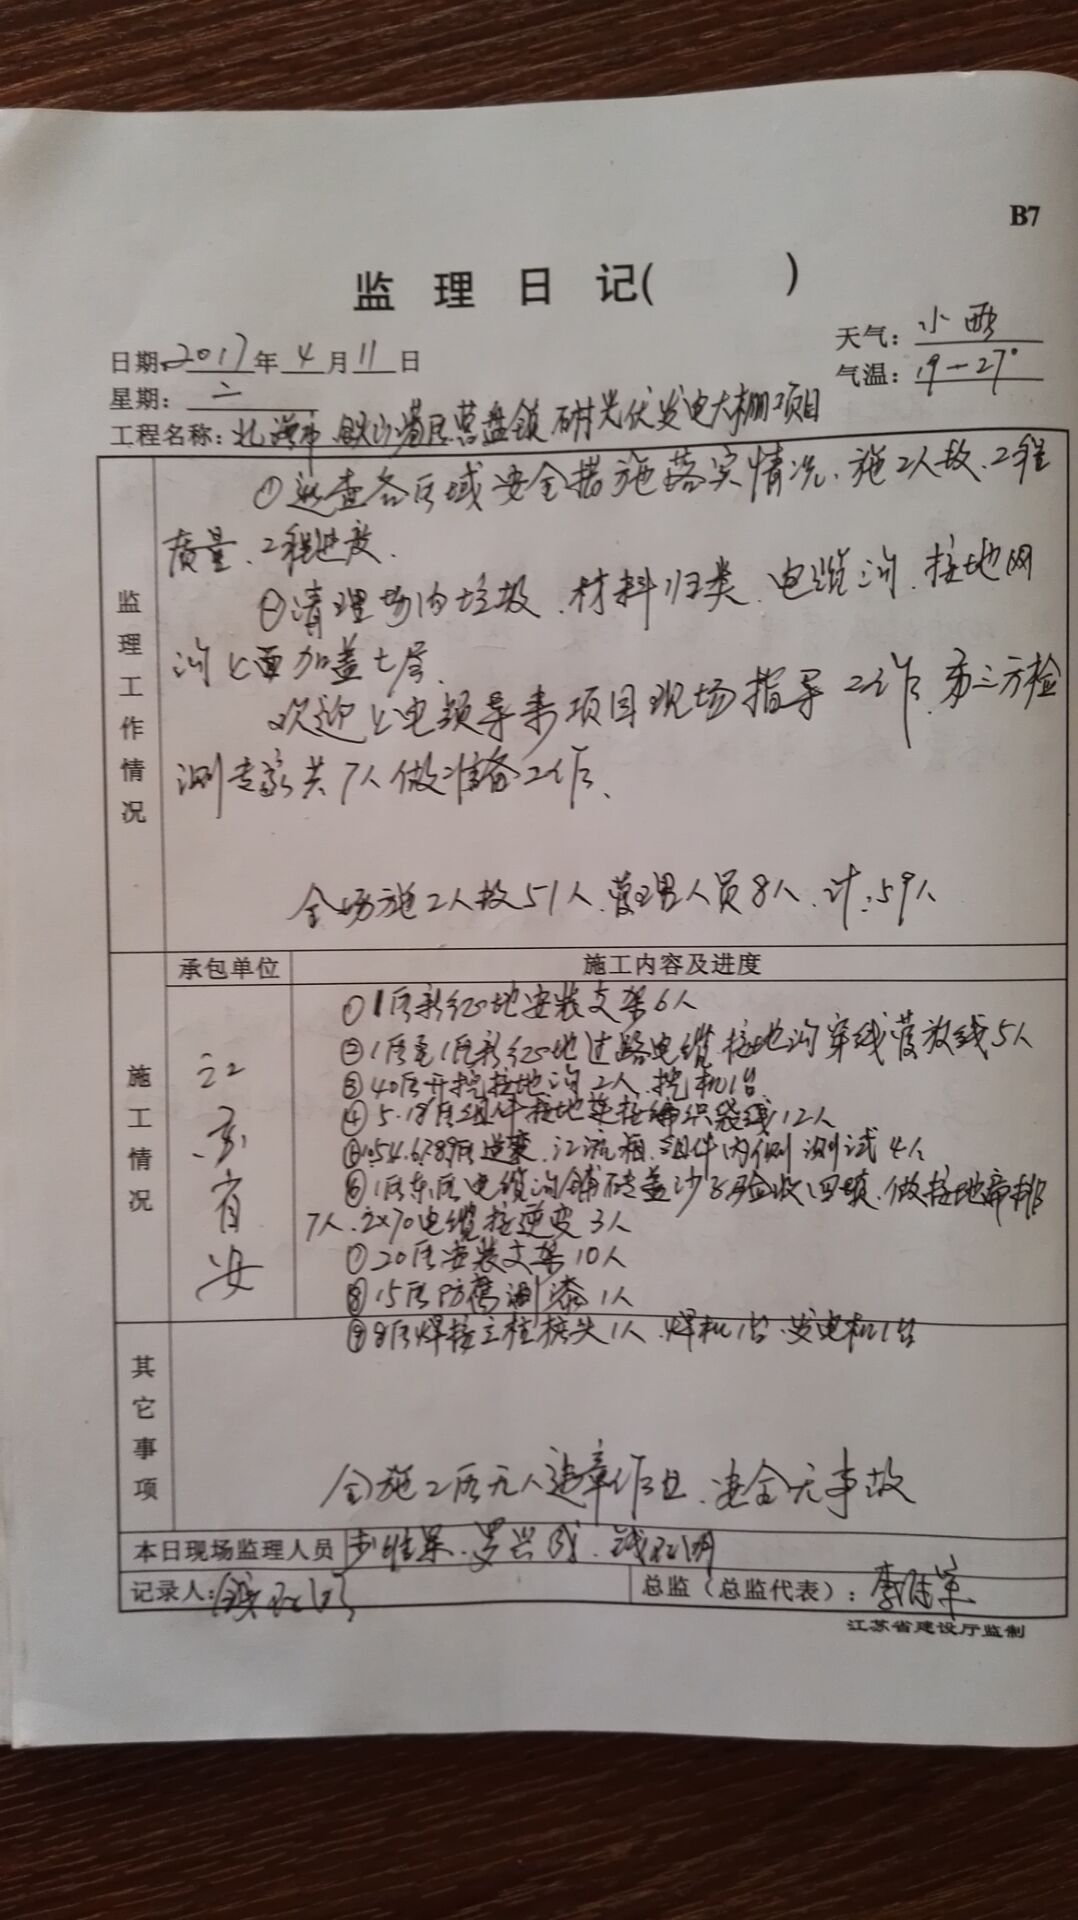 B7
监 理 日 记( )
日期:2017年 4 月 11 日
天气:小雨
气温:19-27°
星期:二
工程名称:北海市铁山港区营盘镇 光伏发电大棚工项目
监理工作情况
①巡查各区域安全措施落实情况、施工人数、工程
质量、工程进度、
②清理场内垃圾、材料归类、电缆沟、接地网
沟上面加盖土层、
欢迎上电领导来项目现场指导工作、第三方检
测专家共7人做准备工作、
全场施工人数51人、管理人员8人、计:59人
承包单位
施工内容及进度
施工情况
江 省安
①1区新红线地安装支架6人
②1区至1区新红线地过路电缆接地沟穿线管放线5人
③40区开挖接地沟2人、挖机1台
④5.18区组件接地 接编织袋线12人
区逆变、汇流箱、组件内侧测试4人
⑥1区东区电缆沟铺砖盖沙子验收四项、做接地 排
7人、2×70电缆接逆变3人
⑦20区安装支架10人
⑧15区防腐油漆1人
⑨8区焊接立柱接头1人、焊机1台、发电机1台
其它事项
全施工区无人违章作业、安全无事故
本日现场监理人员 罗兴成、
记录人:
总监(总监代表): 李 军
江苏省建设厅监制